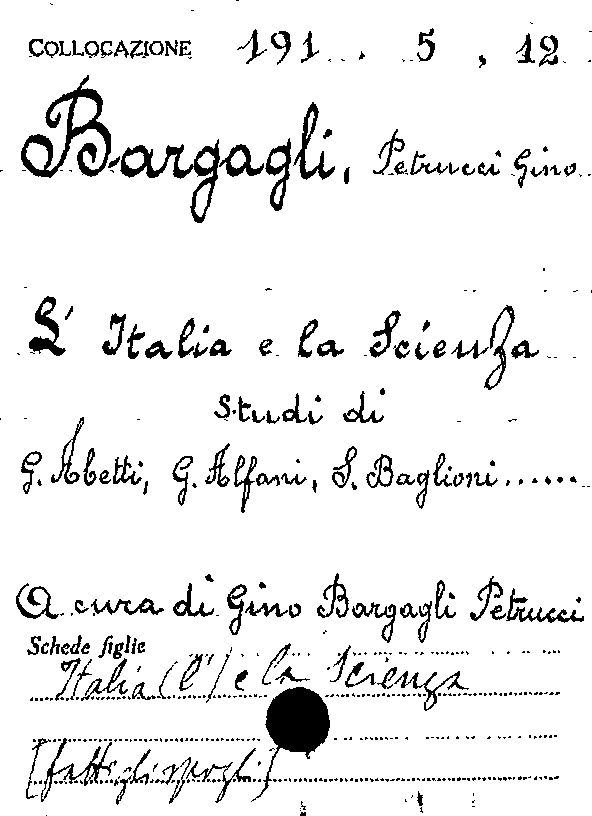 COLLOCAZIONE 191 . 5 , 12
Bargagli, Petrucci Gino
L' Italia e la Scienza
Studi di
G. Abetti, G. Alfani, S. Baglioni......
A cura di Gino Bargagli Petrucci
Schede figlie
Italia (L') e la Scienza
[fatti gli spogli]